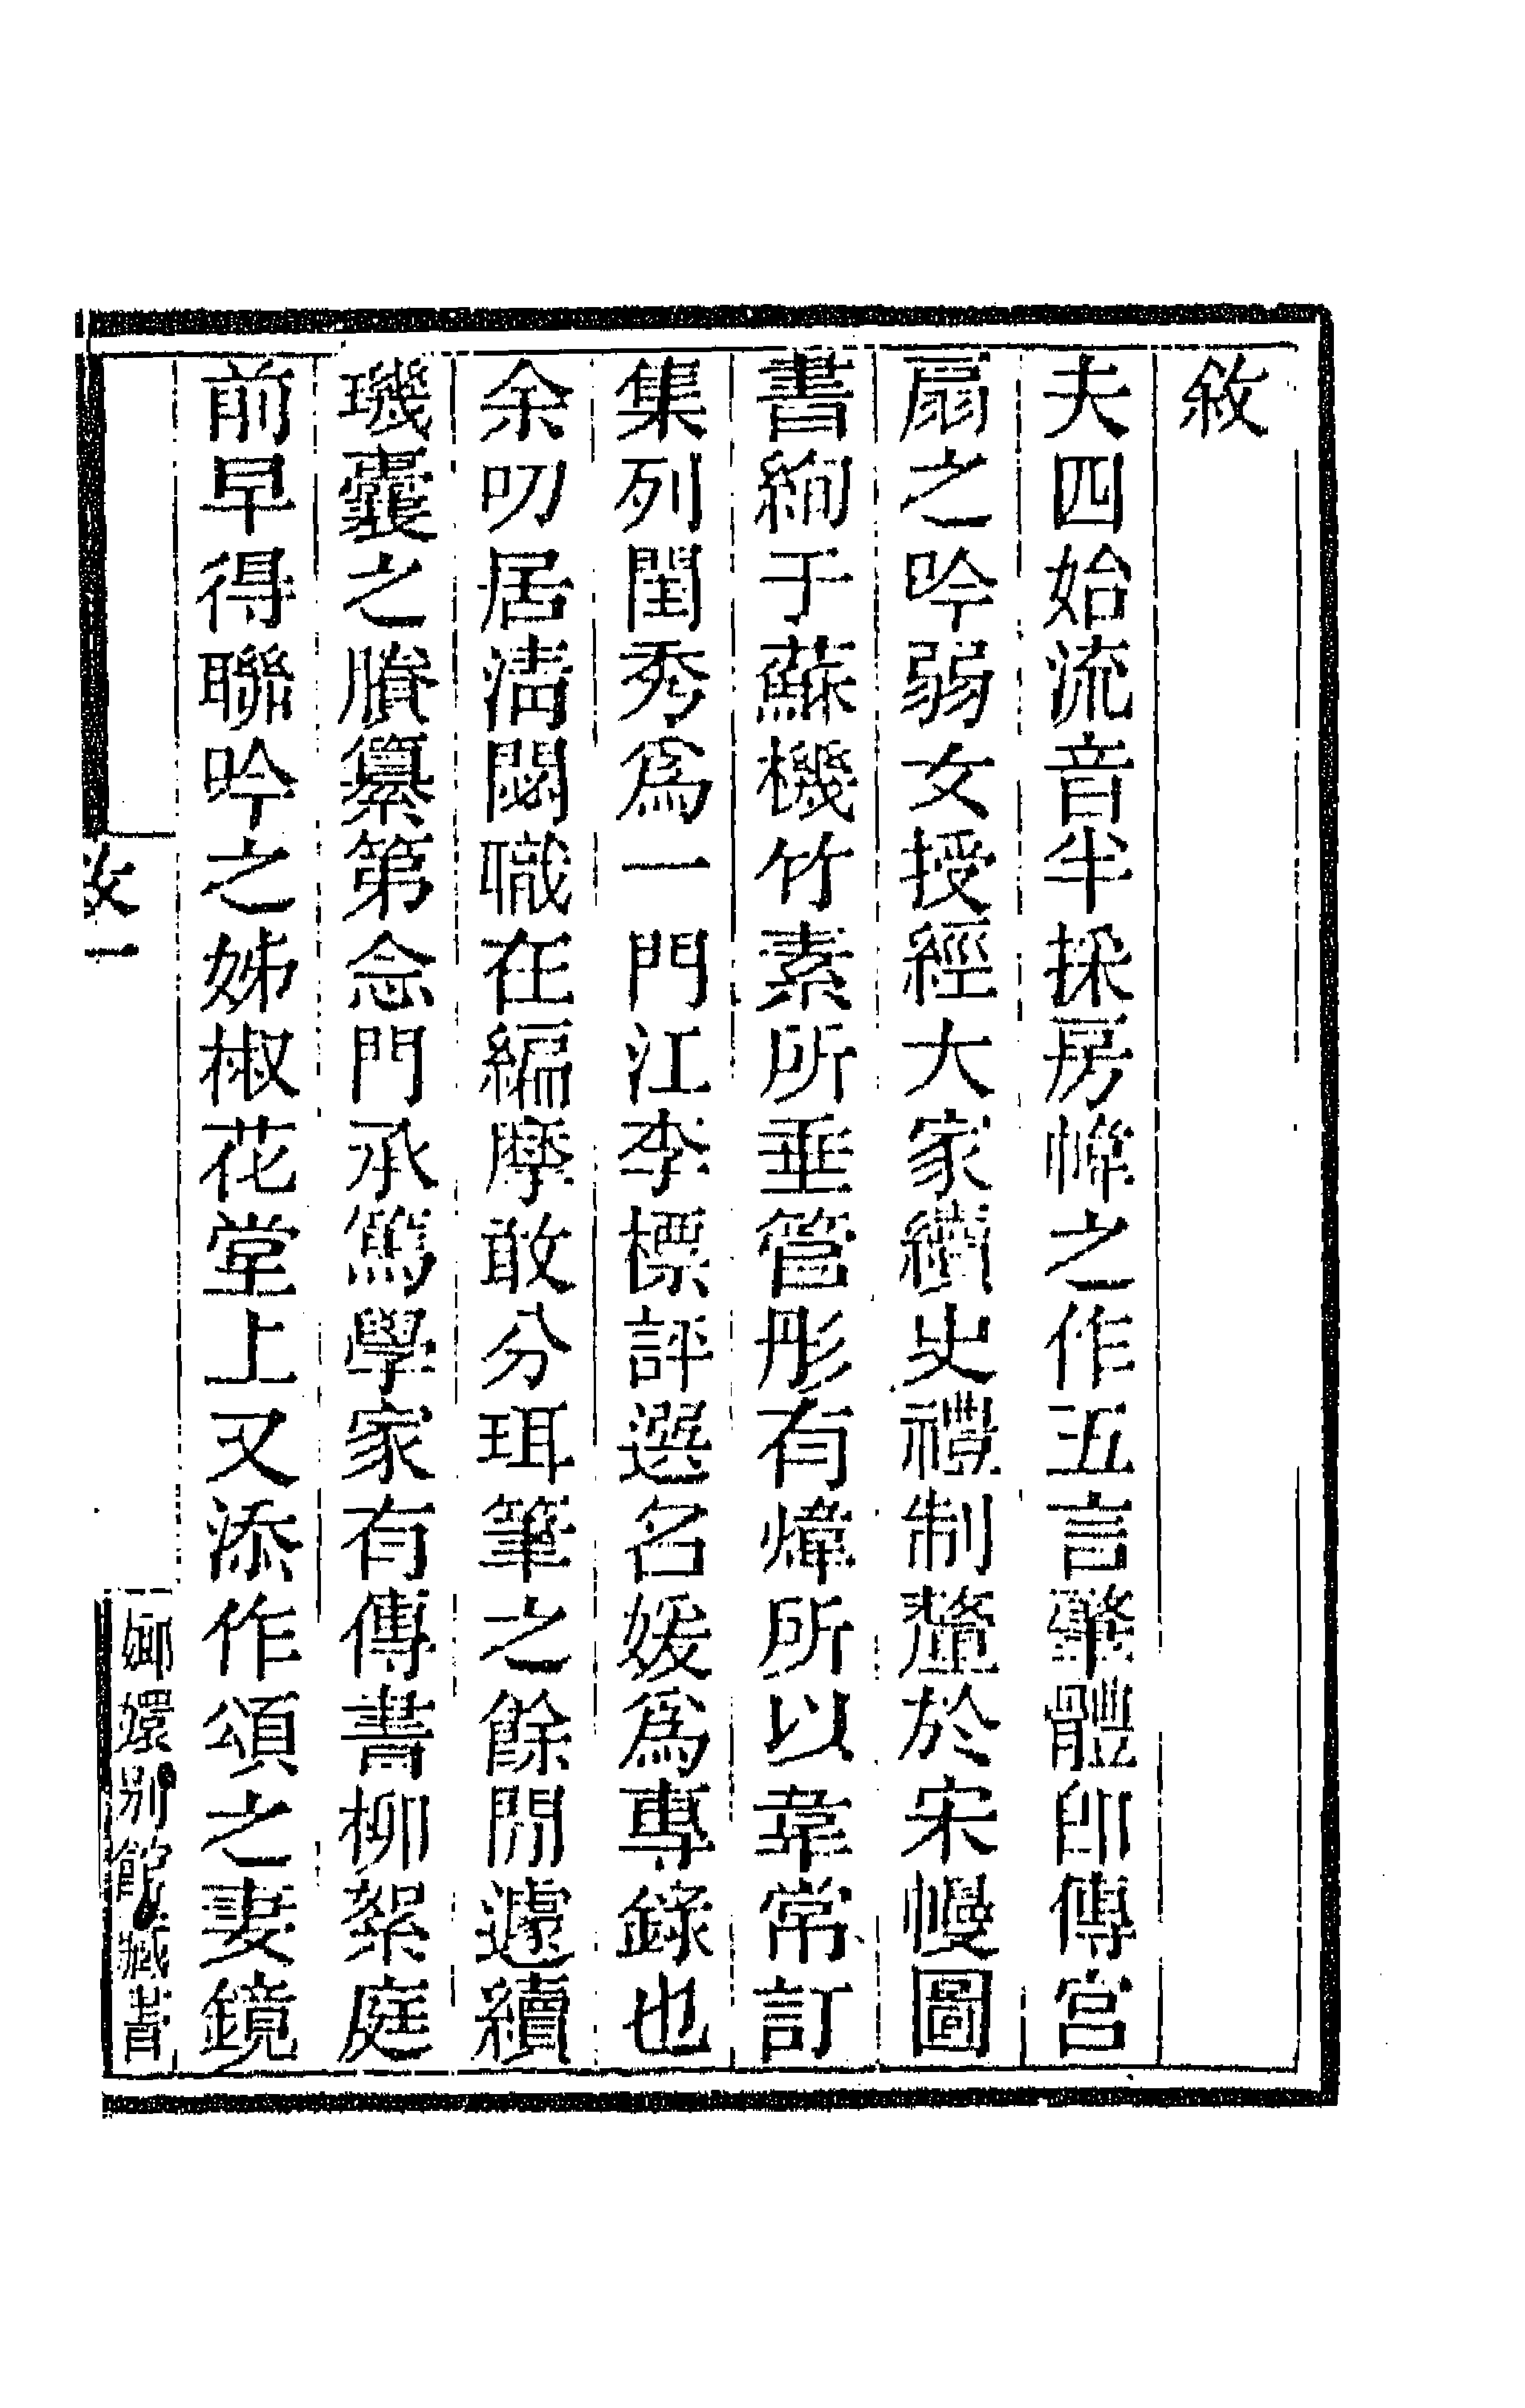 敘
夫四始流音半採房帷之作五言肇體卽傳宮
扇之吟弱女授經大家續史禮制釐於宋幔圖
書絢于蘇機竹素所垂管彤有煒所以韋常訂
集列閨秀爲一門江李標評選名媛爲專錄也
余叨居淸閟職在編摩敢分珥筆之餘閒遽續
璣囊之賸纂第念門承篤學家有傳書柳絮庭
前早得聯吟之姊椒花堂上又添作頌之妻鏡
敘一
嫏嬛別館藏書